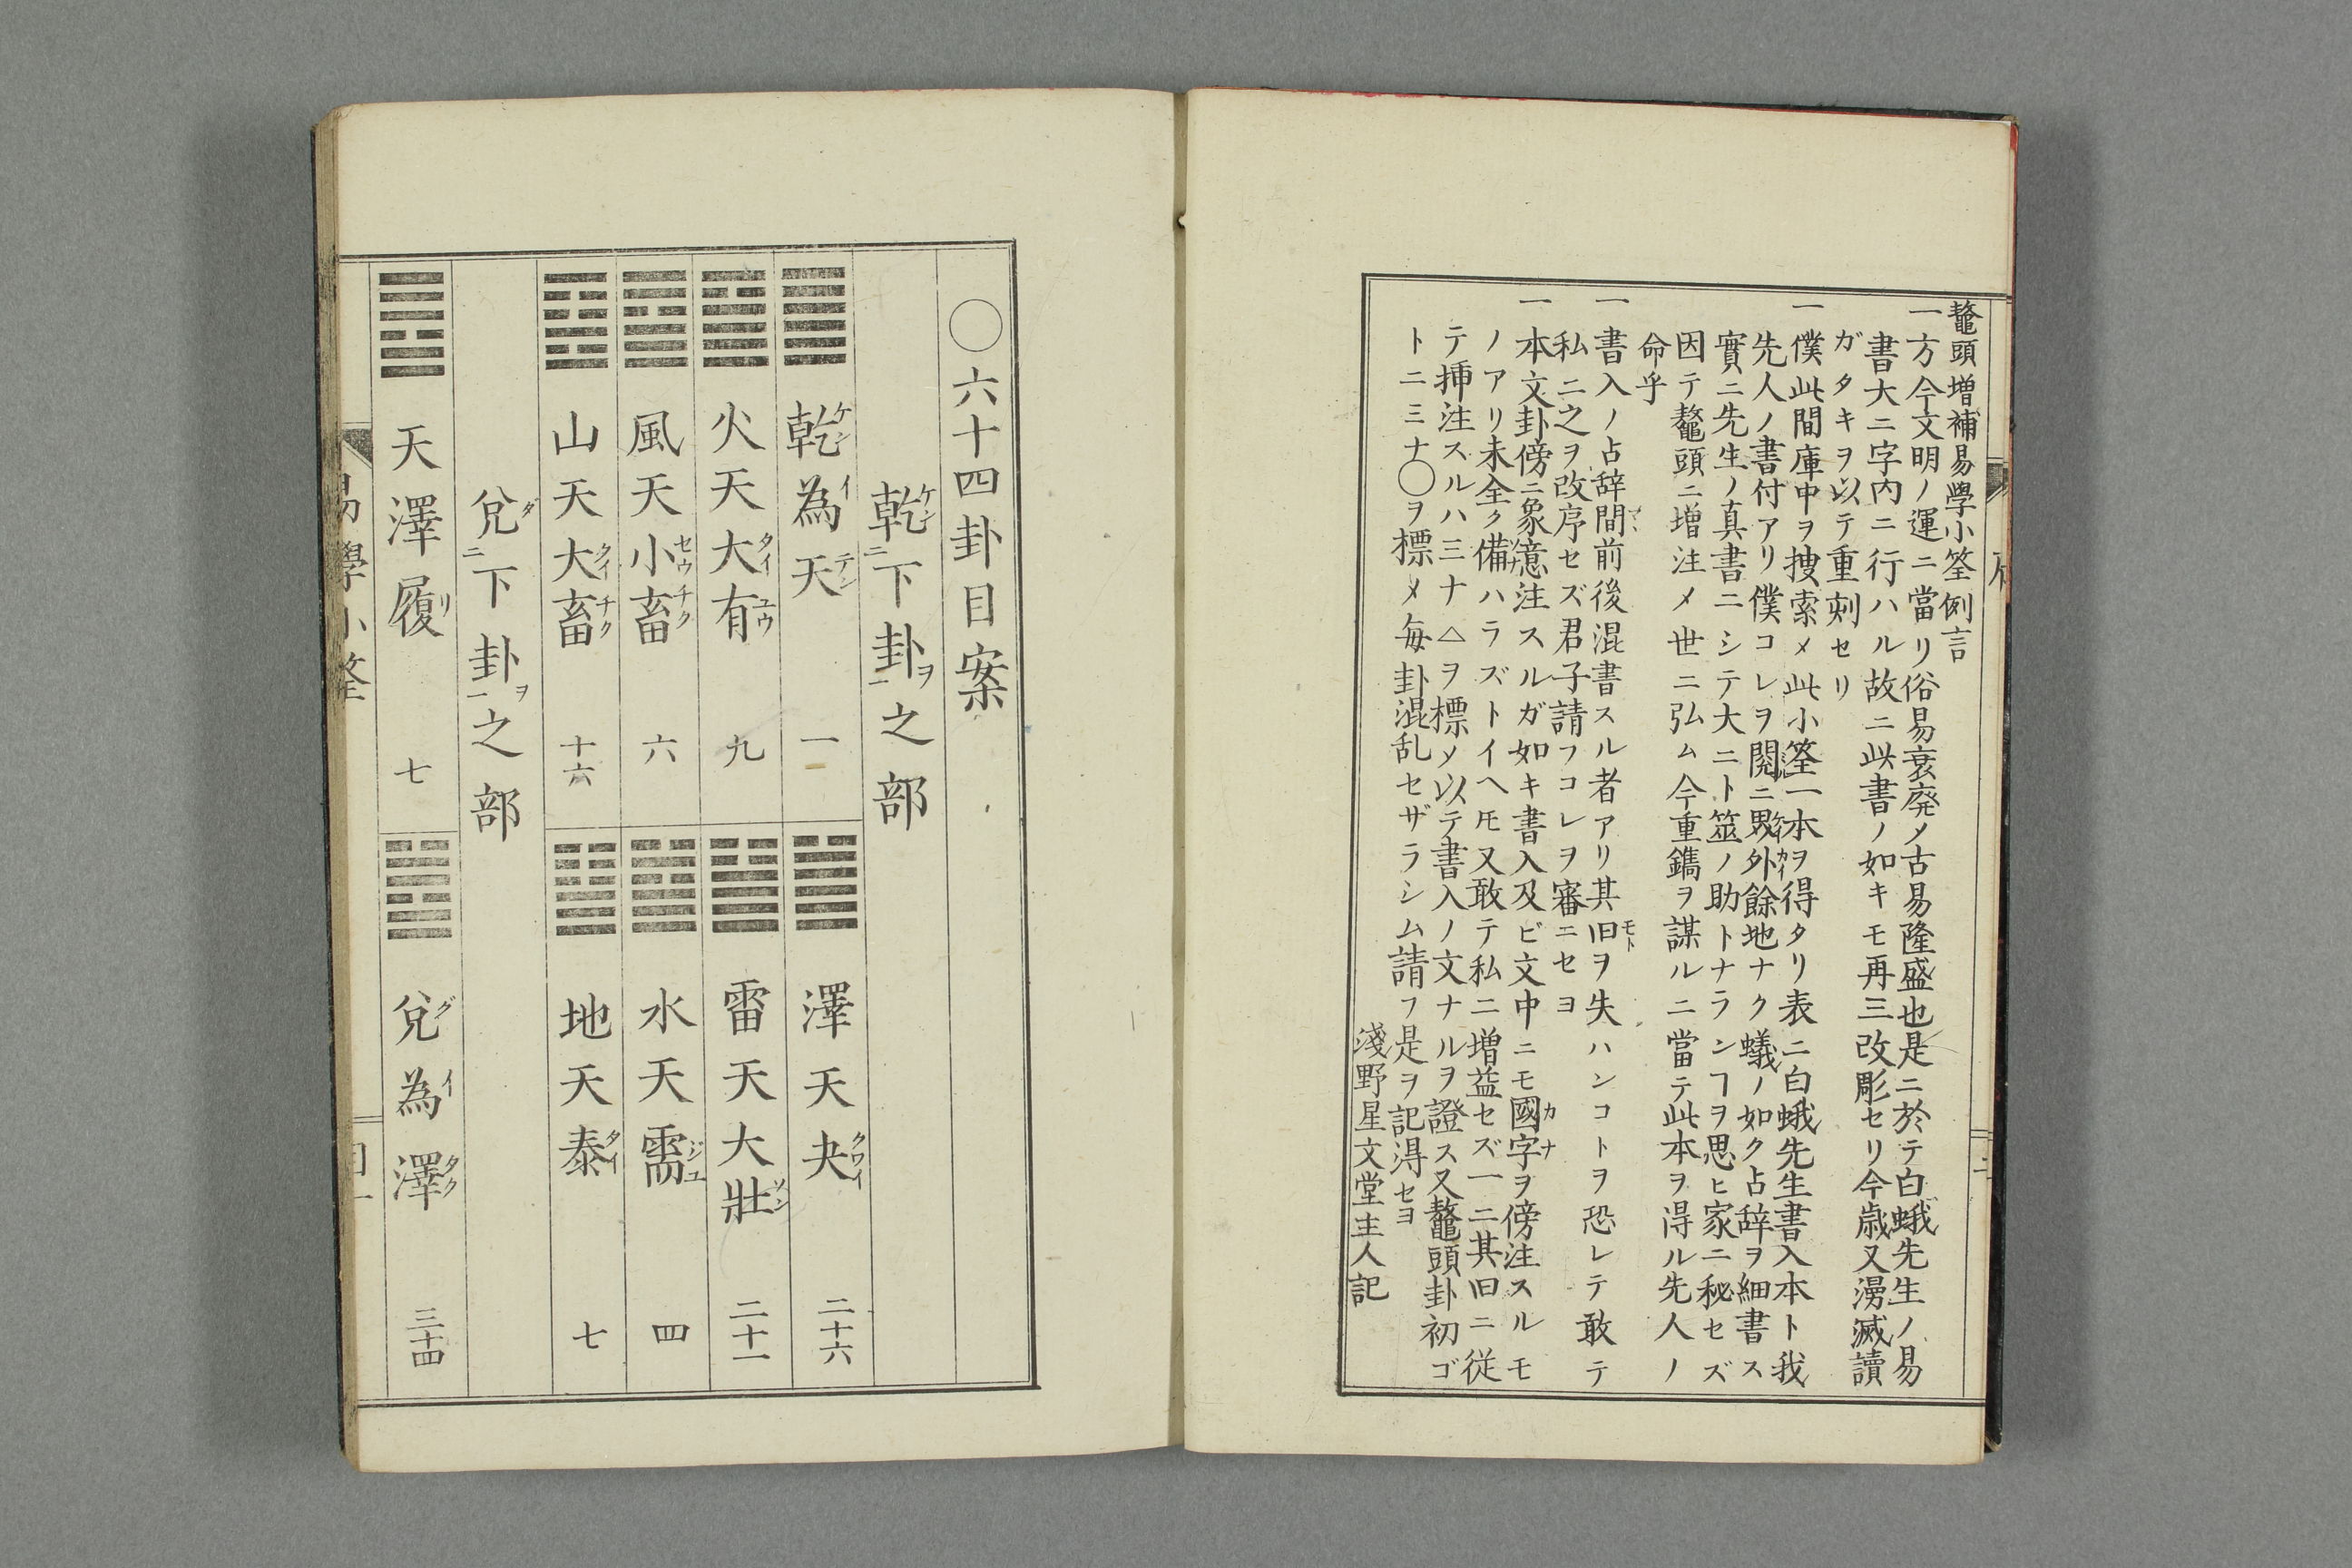 鼇頭増補易學小筌例言
一方今文明ノ運ニ當リ俗易衰廃メ古易隆盛也是ニ於テ白蛾先生ノ易
書大ニ宇内ニ行ハル故ニ此書ノ如キモ再三改彫セリ今歳又漫滅讀
ガタキヲ以テ重刻セリ
一僕此間庫中ヲ捜索メ此小筌一本ヲ得タリ表ニ白蛾先生書入本ト我
先人ノ書付アリ僕コレヲ閲ニ界外餘地ナク蟻ノ如ク占辞ヲ細書ス
實ニ先生ノ真書ニシテ大ニト筮ノ助トナランヿヲ思ヒ家ニ秘セズ
因テ鼇頭ニ増注メ世ニ弘ム今重鐫ヲ謀ルニ當テ此本ヲ得ル先人ノ
命乎
一書入ノ占辞間前後混書スル者アリ其旧ヲ失ハンコトヲ恐レテ敢テ
私ニ之ヲ改序セズ君子請フコレヲ審ニセヨ
一本文卦傍ニ象意注スルガ如キ書入及ビ文中ニモ國字ヲ傍注スルモ
ノアリ未全ク備ハラズトイヘ𪜈又敢テ私ニ増益セズ一二其旧ニ従
テ挿注スルハ三ナ△ヲ標メ以テ書入ノ文ナルヲ證ス又鼇頭卦初ゴ
トニ三ナ〇ヲ標メ毎卦混乱セザラシム請フ是ヲ記得セヨ
淺野星文堂主人記
〇六十四卦目案
乾ニ下卦ヲ一之部
乾為天 一
澤天夬 二十六
火天大有 九
雷天大壯 二十一
風天小畜 六
水天需 四
山天大畜 十六
地天泰 七
兌ニ下卦ヲ一之部
天澤履 七
兌為澤 三十四
易學小筌